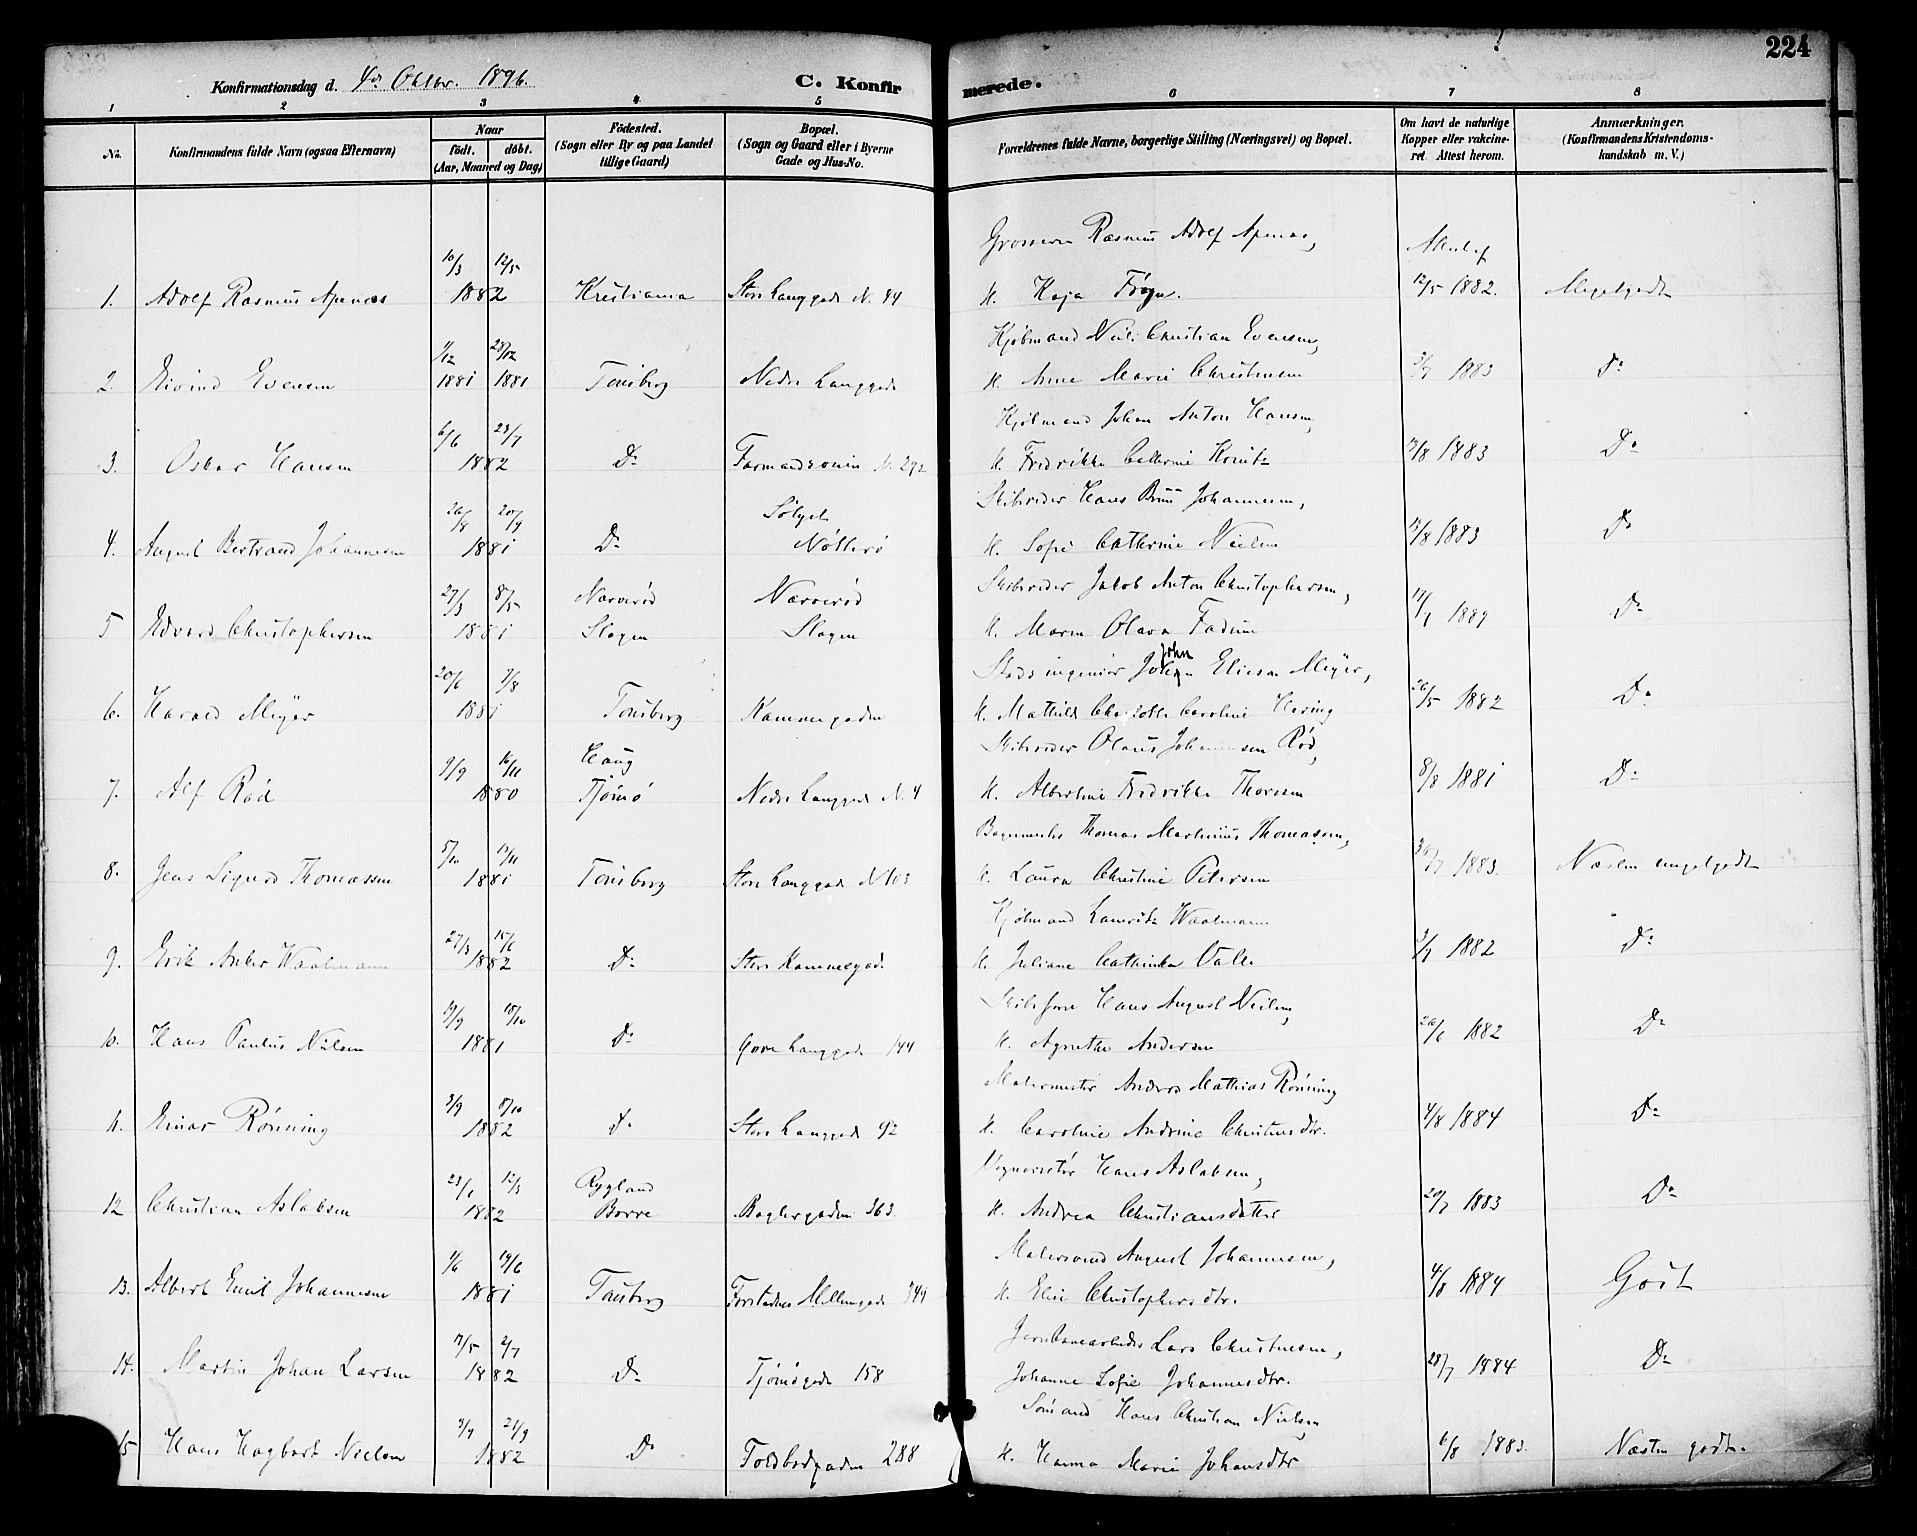 224
Konfirmationsdag d. 4de Oktbr. 1896.
C. Konfirmerede.
1 2 3 4 5 6 7 8
No.
Konfirmandens fulde Navn (ogsaa Efternavn)
Naar
födt. döbt.
(Aar, Maaned og Dag)
Födested.
(Sogn eller By og paa Landet
tillige Gaard)
Bopæl.
(Sogn og Gaard eller i Byerne
Gade og Hus-No.
Forældrenes fulde Navne, borgerlige Stilling (Næringsvei) og Bopæl.
Om havt de naturlige
Kopper eller vakcine-
ret. Attest herom.
Anmærkninger.
(Konfirmandens Kristendoms-
kundskab m. V.)
Grosserer Rasmus Adolf Apenes,
10/3 12/5
1. Adolf Rasmus Apenes 1882 Kristiania Store Langgade N. 44 H. Kaja Frøyn. 12/5 1882. Megetgodt
Kjøbmand Niels Christian Evensen,
1/12 28/12
2. Eivind Evensen 1881 1881 Tønsberg Nedre Langgade H. Anne Marie Christensen 3/7 1883 Do
Kjøbmand Johan Anton Hansen,
6/6 23/7
3. Oskar Hansen 1882 Do Farmandsveien N. 292 H. Fredrikke Cathrine 13/8 1883 Do
Skibsreder Hans Bruu Johannesen,
26/8 20/9 Sølyst
4. August Bertrand Johannesen 1881 Do Nøtterø H. Sofie Cathrine Nielsen 13/8 1883 Do
Skibsreder Jakob Anton Christophersen,
27/3 8/5 Narverød Narverød
5 Edvard Christophersen 1881 Slagen Slagen H. Maren Olava Fadum 17/7 1889 Do
John
Stadsingeniør Johan Elieson Meyer,
20/6 7/8
6. Harald Meyer 1881 Tønsberg Kammegaden H. Mathilde Charlotte Caroline Hering 26/5 1882 Do
Skibsreder Olaus Johannesen Rød,
9/9 16/11 Haug
7. Alf Rød 1880 Tjømø Nedre Langgade N. 4 H. Albertine Fredrikke Thoresen 8/8 1881 Do
Bagermester Thomas Martinius Thomassen,
5/10 13/11
8. Jens Sigurd Thomassen 1881 Tønsberg Store Langgade N 103 H. Laura Christine Petersen 30/7 1883. Næsten megetgodt
Kjøbmand Lauritz Waalmann
27/3 15/6
9. Erik Anker Waalmann 1882 Do Store Kammegade H. Juliane Cathinka Valle 3/7 1882 Do
Skibsfører Hans August Nielsen,
19/9 18/10
10. Hans Paulus Nilsen 1881 Do Øvre Langgade 144 H. Agnethe Andersen 26/6 1882 Do
Malermester Anders Mathias Rønning
3/9 8/10
11. Einar Rønning 1882 Do Store Langgade 92 H. Caroline Andrine Christensdtr. 4/8 1884 Do
Vognvisitør Hans Aslaksen,
23/1 12/3 Rygland
12 Christian Aslaksen 1882 Borre Baglergaden 363. H. Andrea Christiansdatter 20/7 1883 Do
Malersvend August Johannesen,
1/6 19/6
13. Albert Emil Johannesen 1881 Tønsberg Forstadens Mellemgade 349 H. Elise Christophersdtr. 4/8 1884 Godt
Jernbanearbeider Lars Christensen,
7/5 2/7
14. Martin Johan Larsen 1882 Do Tjømøgade 158 Johanne Sofie Johannesdtr. 28/7 1884 Do
Sømand Hans Christian Nielsen,
3/9 21/9
15 Hans Hagbart Nielsen 1882 Do Toldbodgaden 288 H. Hanna Marie Johansdtr 6/8 1883. Næsten godt.